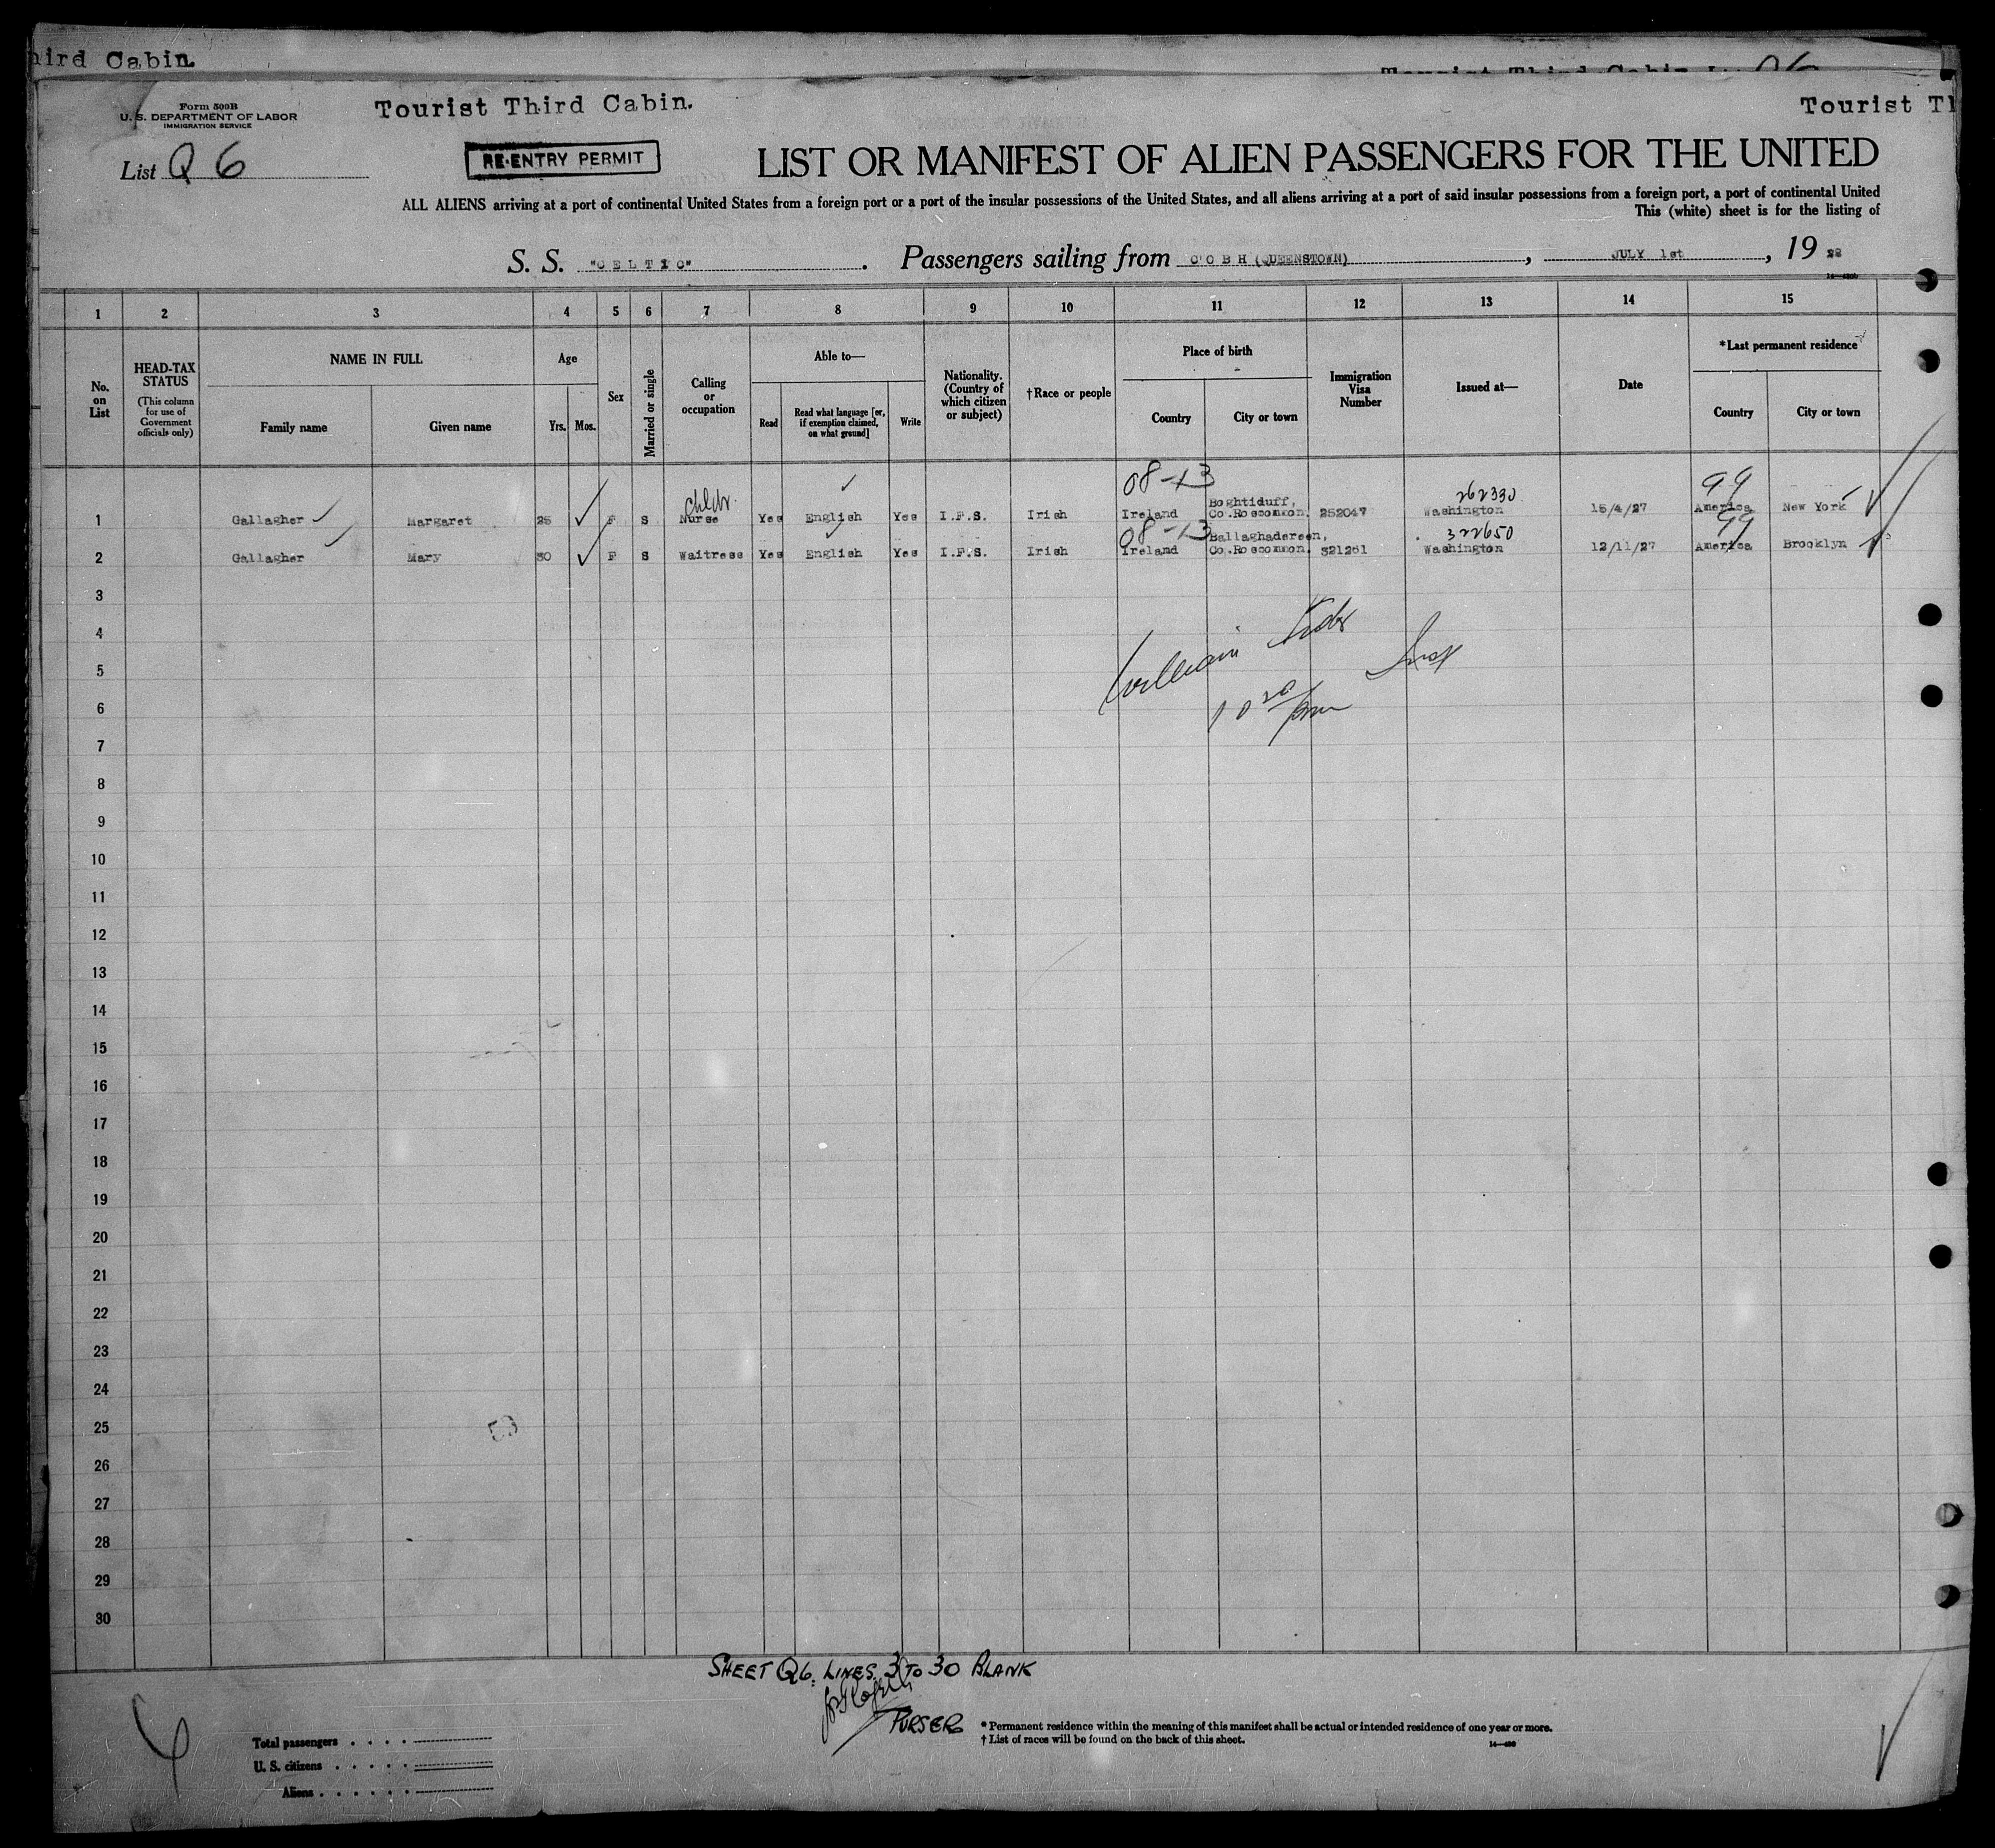 hird Cabin.
Form 500B
U. S. DEPARTMENT OF LABOR
IMMIGRATION SERVICE
Tourist Third Cabin.
Tourist Th
List Q 6
RE-ENTRY PERMIT
LIST OR MANIFEST OF ALIEN PASSENGERS FOR THE UNITED
ALL ALIENS arriving at a port of continental United States from a foreign port or a port of the insular possessions of the United States, and all aliens arriving at a port of said insular possessions from a foreign port, a port of continental United
This (white) sheet is for the listing of
S. S. "CELTIC". Passengers sailing from COBH (QUEENSTOWN), JULY 1st, 1928
1 2 3 4 5 6 7 8 9 10 11 12 13 14 15
No. on List
HEAD-TAX STATUS (This column for use of Government officials only)
NAME IN FULL
Family name
Given name
Age
Yrs. Mos.
Sex
Married or single
Calling or occupation
Able to—
Read
Read what language [or, if exemption claimed, on what ground]
Write
Nationality. (Country of which citizen or subject)
†Race or people
Place of birth
Country
City or town
Immigration Visa Number
Issued at—
Date
*Last permanent residence
Country
City or town
08-13 262330 99
1 Gallagher Margaret 25 F S Nurse Yes English Yes I.F.S. Irish Ireland Boghtiduff, Co.Roscommon. 252047 Washington 15/4/27 America New York
08-13 322650 99
2 Gallagher Mary 30 F S Waitress Yes English Yes I.F.S. Irish Ireland Ballaghadereen, Co.Roscommon. 321261 Washington 12/11/27 America Brooklyn
3
4
William Insp
5
6
10 20 pm
7
8
9
10
11
12
13
14
15
16
17
18
19
20
21
22
23
24
25
26
27
28
29
30
SHEET Q6: LINES 3 TO 30 BLANK
PURSER
* Permanent residence within the meaning of this manifest shall be actual or intended residence of one year or more.
† List of races will be found on the back of this sheet.
Total passengers
U. S. citizens
Aliens